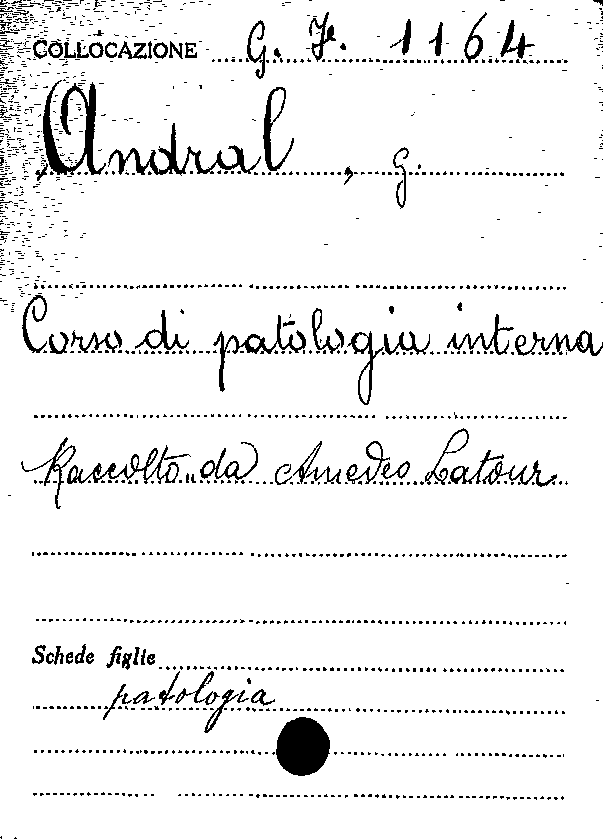 COLLOCAZIONE G. F. 1164
Andral, G.
Corso di patologia interna
Raccolto da Amedeo Latour
Schede figlie
patologia